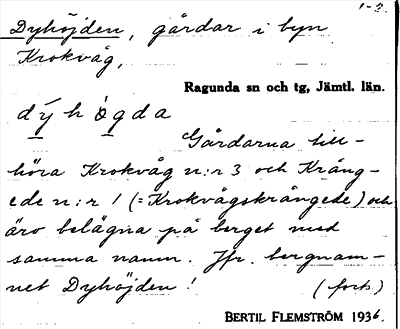 1-2.
Dyhöjden, gårdar i byn
Krokvåg,
Ragunda sn och tg, Jämtl. län.
dýhògda
Gårdarna till-
höra Krokvåg n:r 3 och Kráng-
ede n:r 1 (=Krokvågskrångede) och
äro belägna på berget med
samma namn. Jfr. bergnam-
net Dyhöjden!
(forts.)
BERTIL FLEMSTRÖM 1936.